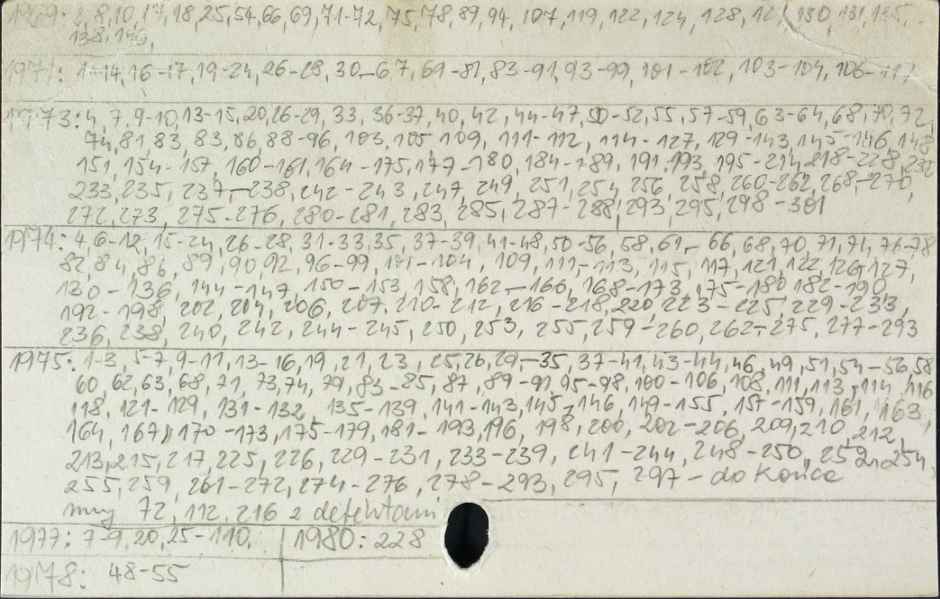 1969: 2, 8, 10, 17, 18, 25, 54, 66, 69, 71-72, 75, 78, 89, 94, 107, 119, 122, 124, 128, 130, 131, 135,
138, 149,
1971: 1-14, 16-17, 19-24, 26-28, 30-67, 69-81, 83-91, 93-99, 101-102, 103-104, 106-117
1973: 4, 7, 9-10, 13-15, 20, 26-29, 33, 36-37, 40, 42, 44-47, 50-52, 55, 57-59, 63-64, 68, 70, 72,
74, 81, 83, 83, 86, 88-96, 103, 105, 109, 111-112, 114-127, 129-143, 145-146, 148
151, 154-157, 160-161, 164-175, 177-180, 184-189, 191, 193, 195-214, 218-228, 232
233, 235, 237-238, 242-243, 247, 249, 251, 254, 256, 258, 260-262, 268-270,
272, 273, 275-276, 280-281, 283, 285, 287-288, 293, 295, 298-301
1974: 4, 6-12, 15-24, 26-28, 31-33, 35, 37-39, 41-48, 50-56, 58, 61-66, 68, 70, 71, 74, 76-78
82, 84, 86, 89, 90, 92, 96-99, 101-104, 109, 111-113, 115, 117, 121, 122, 126, 127,
130-136, 144-147, 150-153, 158, 162-166, 168-173, 175-180, 182-190,
192-198, 202, 204, 206, 207, 210-212, 216-218, 220, 223-225, 229-233,
236, 238, 240, 242, 244-245, 250, 253, 255, 259-260, 262-275, 277-293
1975: 1-3, 5-7, 9-11, 13-16, 19, 21, 23, 25, 26, 29-35, 37-41, 43-44, 46, 49, 51, 54-56, 58
60, 62, 63, 68, 71, 73, 74, 79, 83-85, 87, 89-91, 95-98, 100-106, 108, 111, 113, 114, 116
118, 121-129, 131-132, 135-139, 141-143, 145-146, 149-155, 157-159, 161, 163,
164, 167, 170-173, 175-179, 181-193, 196, 198, 200, 202-206, 209, 210, 212,
213, 215, 217, 225, 226, 229-231, 233-239, 241-244, 248-250, 252, 254,
255, 259, 261-272, 274-276, 278-293, 295, 297-do końca
nury 72, 112, 216 z defektami
1977: 7-9, 20, 25-110. 1980: 228
1978: 48-55